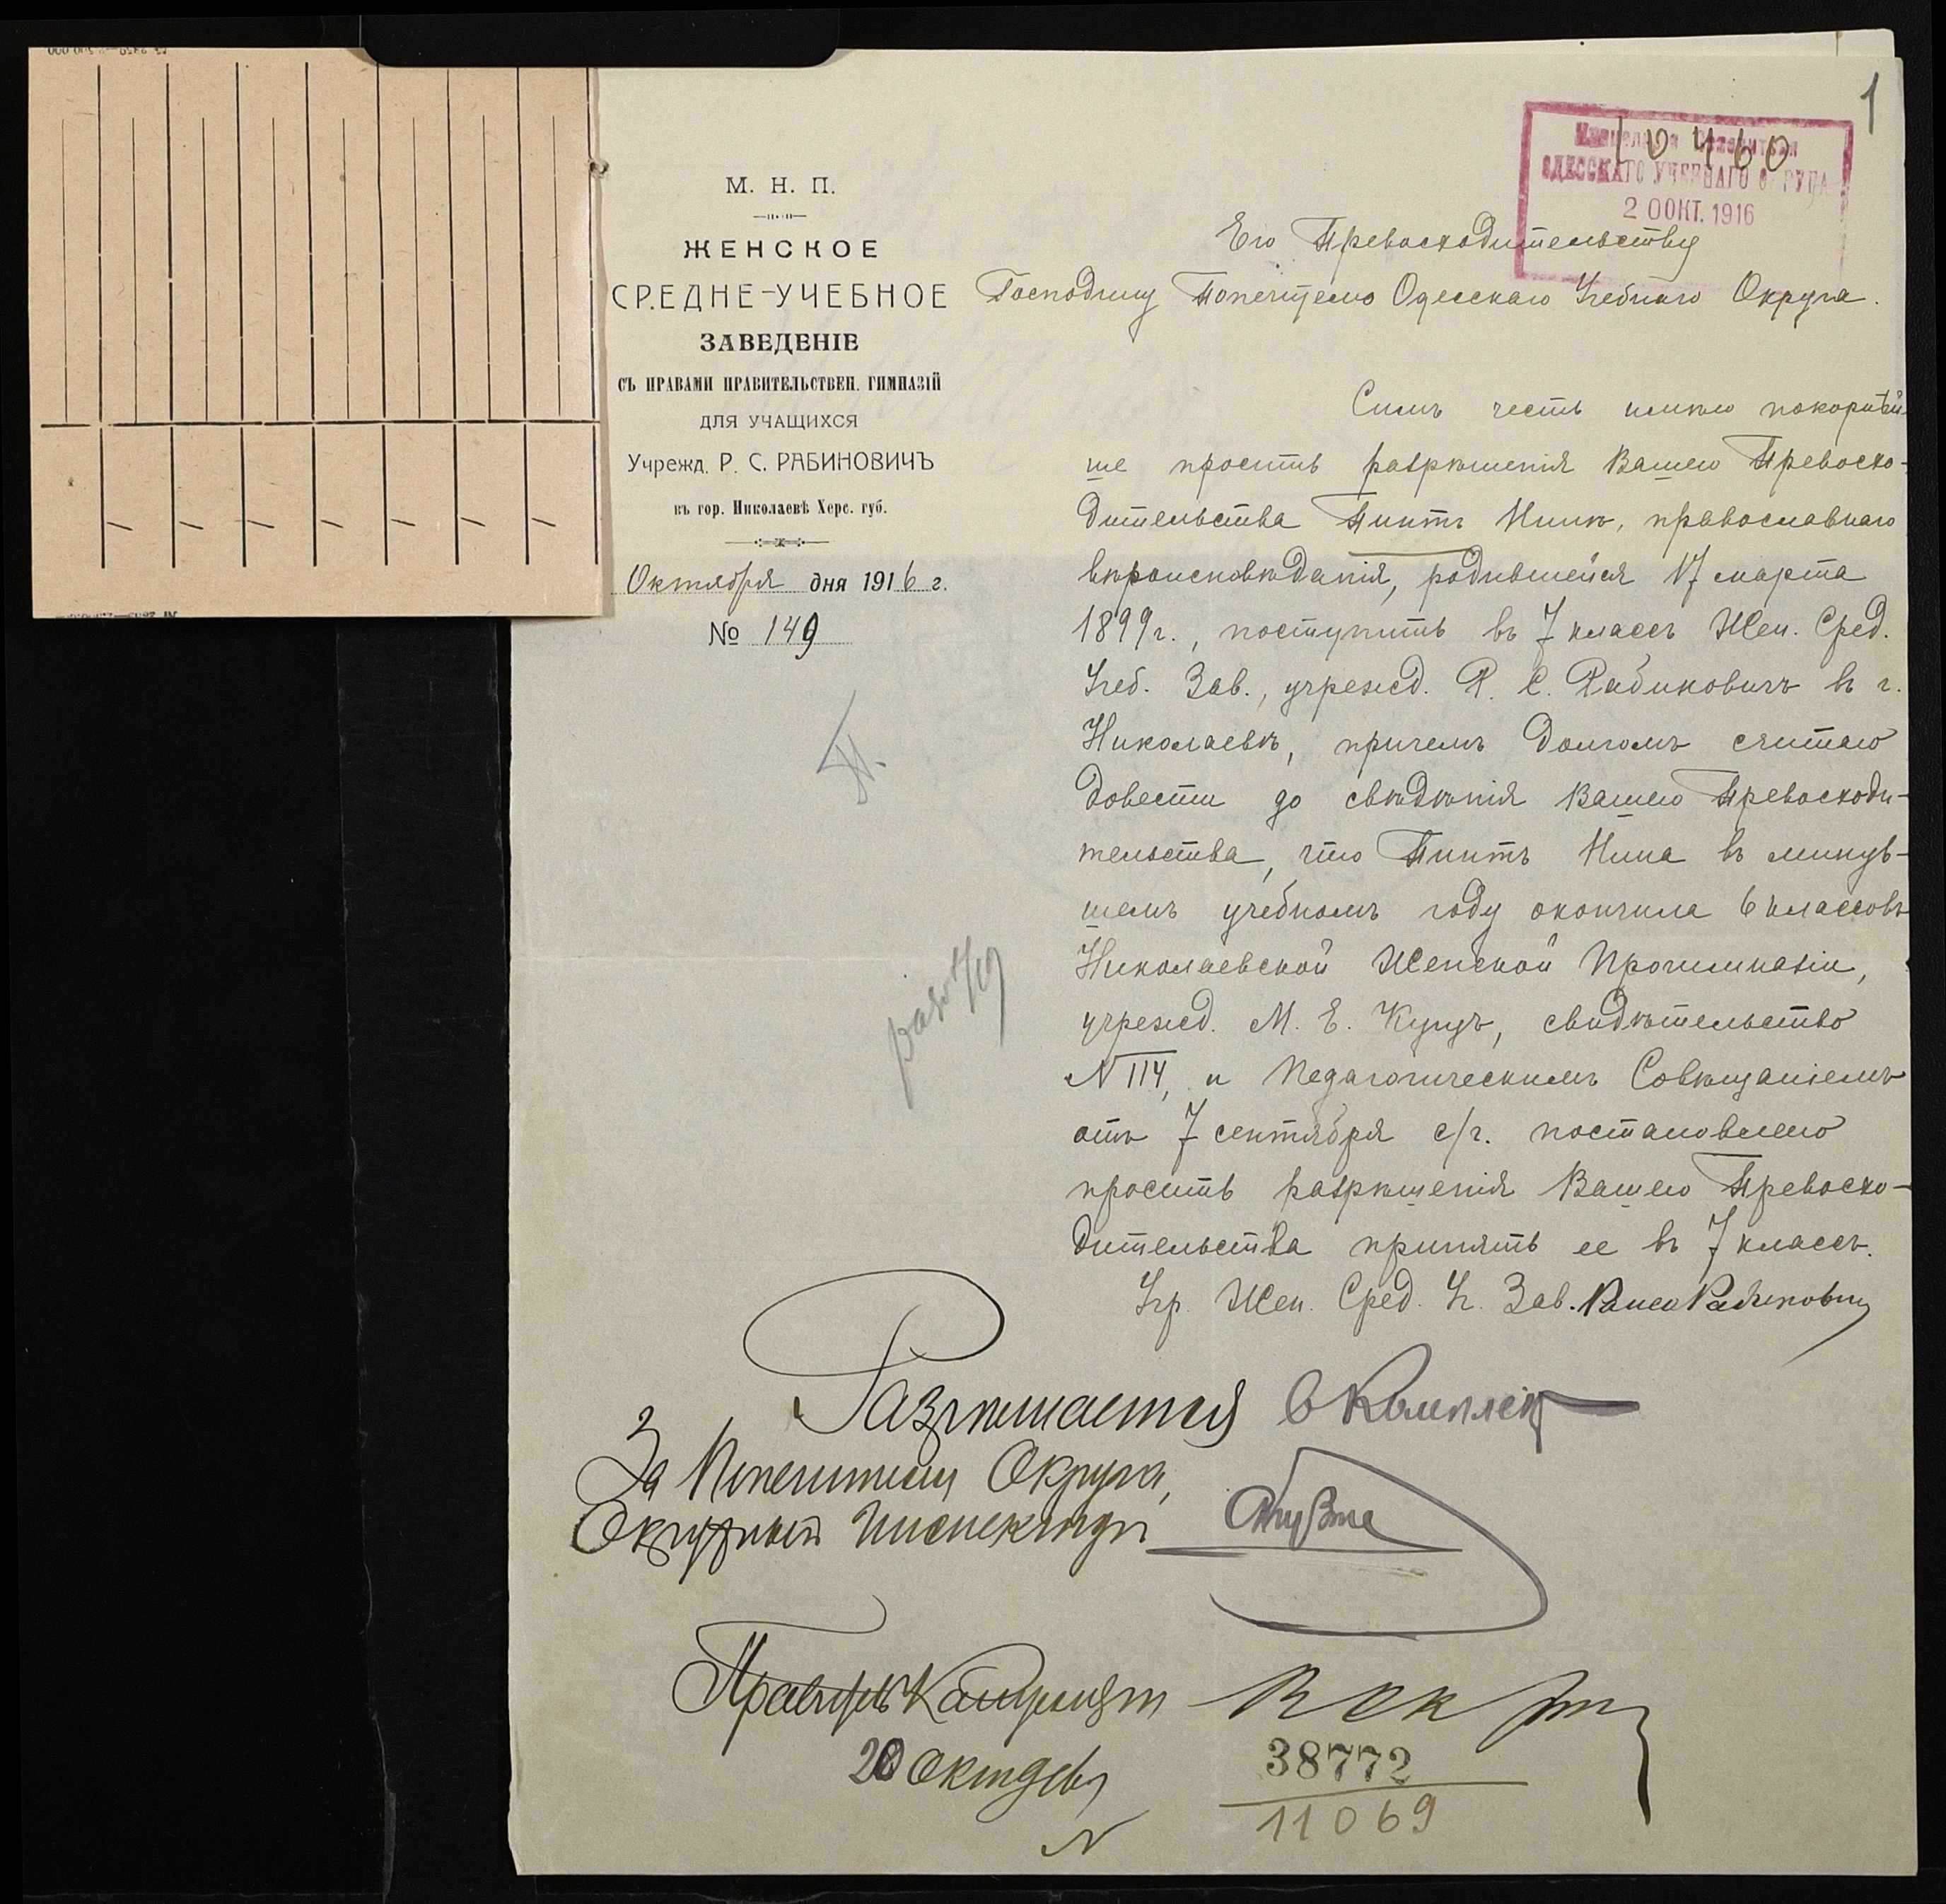 1
Канцелярія Попечителя
10460
ОДЕССКАГО УЧЕБНАГО ОКРУГА
20 ОКТ. 1916
М. Н. П.
ЖЕНСКОЕ
СРЕДНЕ-УЧЕБНОЕ
ЗАВЕДЕНІЕ
СЪ ПРАВАМИ ПРАВИТЕЛЬСТВЕН. ГИМНАЗІЙ
ДЛЯ УЧАЩИХСЯ
Учрежд. Р. С. РАБИНОВИЧЪ
въ гор. Николаевѣ Херс. губ.
Октября дня 1916 г.
№ 149
Его Превосходительству
Господину Попечителю Одесскаго Учебнаго Округа.
Симъ честь имѣю покорнѣй-
ше просить разрѣшенія Вашего Превосхо-
дительства Пинтъ Нинѣ, православнаго
вѣроисповѣданія, родившейся 17 марта
1899 г., поступить въ 7 классъ Жен. Сред.
Учеб. Зав., учрежд. Р. С. Рабиновичъ въ г.
Николаевѣ, причемъ долгомъ считаю
довести до свѣдѣнія Вашего Превосходи-
тельства, что Пинтъ Нина въ минув-
шемъ учебномъ году окончила 6 классовъ
Николаевской Женской Прогимназіи,
учрежд. М. Е. Кущъ, свидѣтельство
N 114, и Педагогическимъ Совѣщаніемъ
отъ 7 сентября с/г. постановлено
просить разрѣшенія Вашего Превосхо-
дительства принять ее въ 7 классъ.
Учр. Жен. Сред. Уч. Зав. Раиса Рабиновичъ
Разрѣшается въ комплектъ
За Попечителя Округа,
Окружный Инспекторъ
Правитель Канцеляріи
20 Октября
38772
N 11069